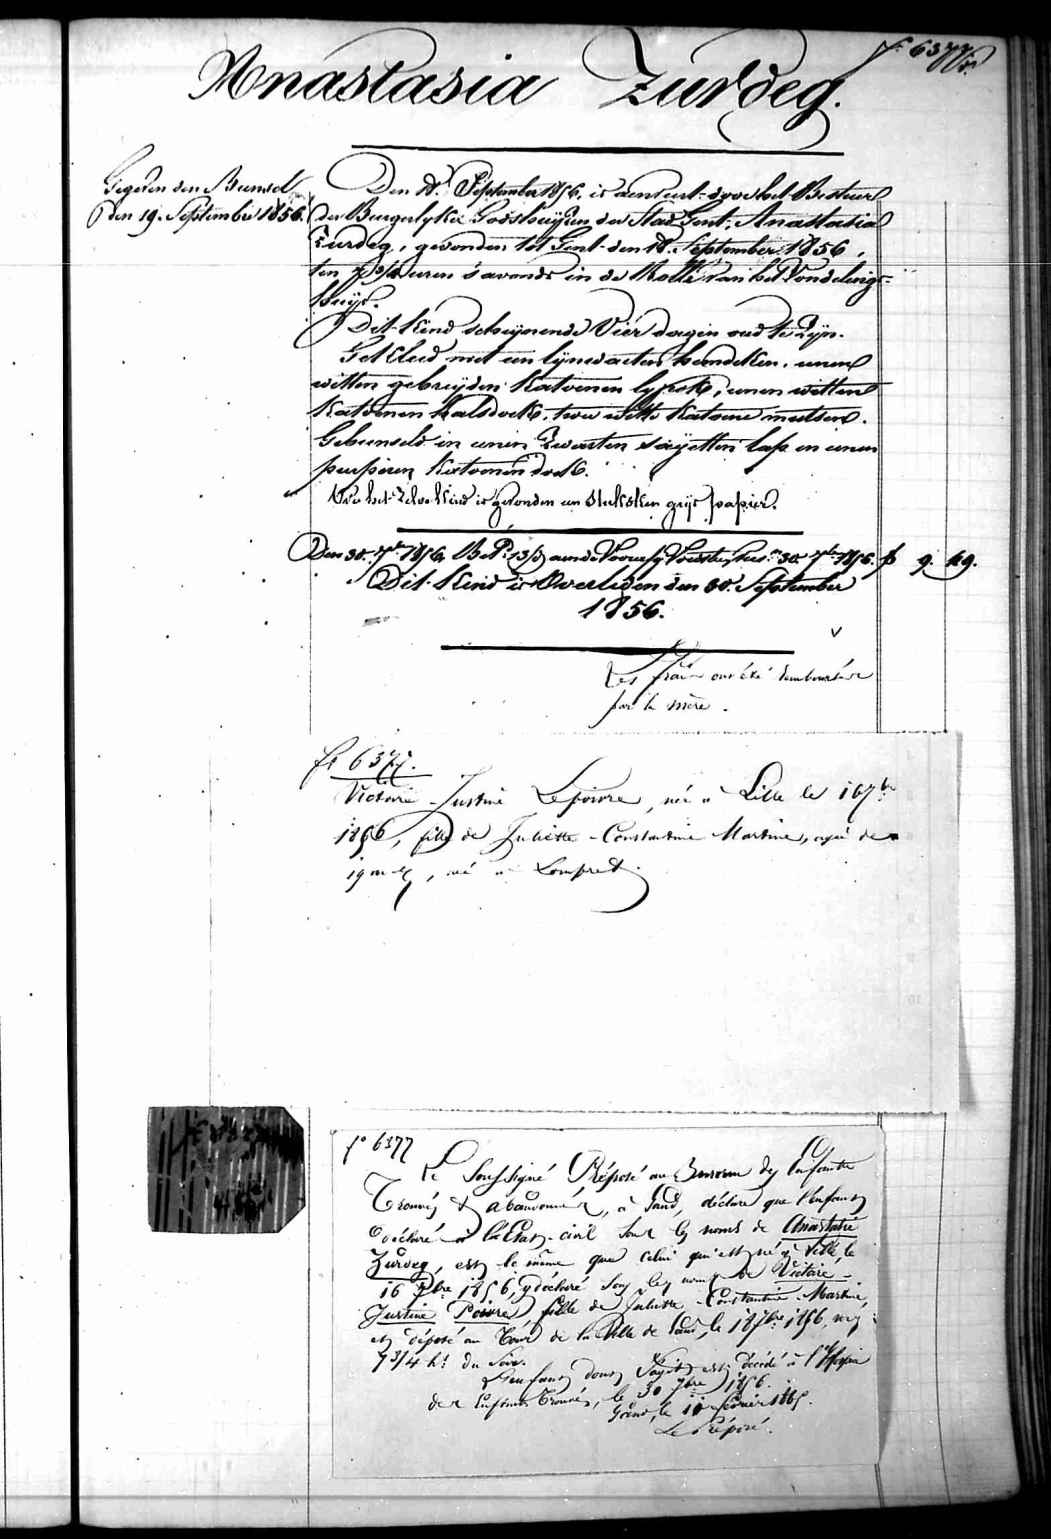 f° 6377
Anastasia Zurdeg.
Gegeven den
Den 19. September 1856.
Den 18. September 1856. is aenveerd door het Bestuer
der Burgerlyke Godshuyzen der Stad Gent, Anastasia
Zurdeg, gevonden tot Gent den 18. September 1856,
ten 7 3/4 uren s'avonds in de Rolle van het Vondelings-
huys.
Dit Kind schynende Vier dagen oud te zyn.
Gekleed met een lynwaeten hemdeken, eenen
witten gebryden Katoenen lyfrok, eenen witten
Katoenen halsdoek, twee witte Katoene mutsen.
Gebunseld in eenen Zwarten sayetten lap en eenen
purperen Katoenen doek.
Bij het zelve Kind is gevonden een stuksken grys papier.
Den 30. 7ber 1856. 30. 7ber 1856. f 9. 49.
Dit Kind is Overleden den 30. September
1856.
Les frais ont été remboursés
par la mère.
f° 6377.
Victoire Justine Lepoivre, née à Lille le 16 7bre
1856, fille de Juliette Constantine Martine, agée de
19 ans, née à Lompret
f° 6377
Le Soussigné Préposé au Bureau des Enfants
Trouvés & abandonnés, à Gand, déclare que l'enfant
déclaré à l'Etat-civil sous les noms de Anastasie
Zurdeg, est le même que celui qui est né à Lille le
16 7bre 1856, y déclaré sous les noms de Victoire
Justine Poivre fille de Juliette Constantine Martine
et déposé au Tour de la Ville de Gand, le 18 7bre 1856, vers
7 3/4 h: du soir.
L'enfant dont s'agit est décédé à l'hospice
des Enfants Trouvés, le 30 7bre 1856.
Gand, le février 1865.
Le Préposé.